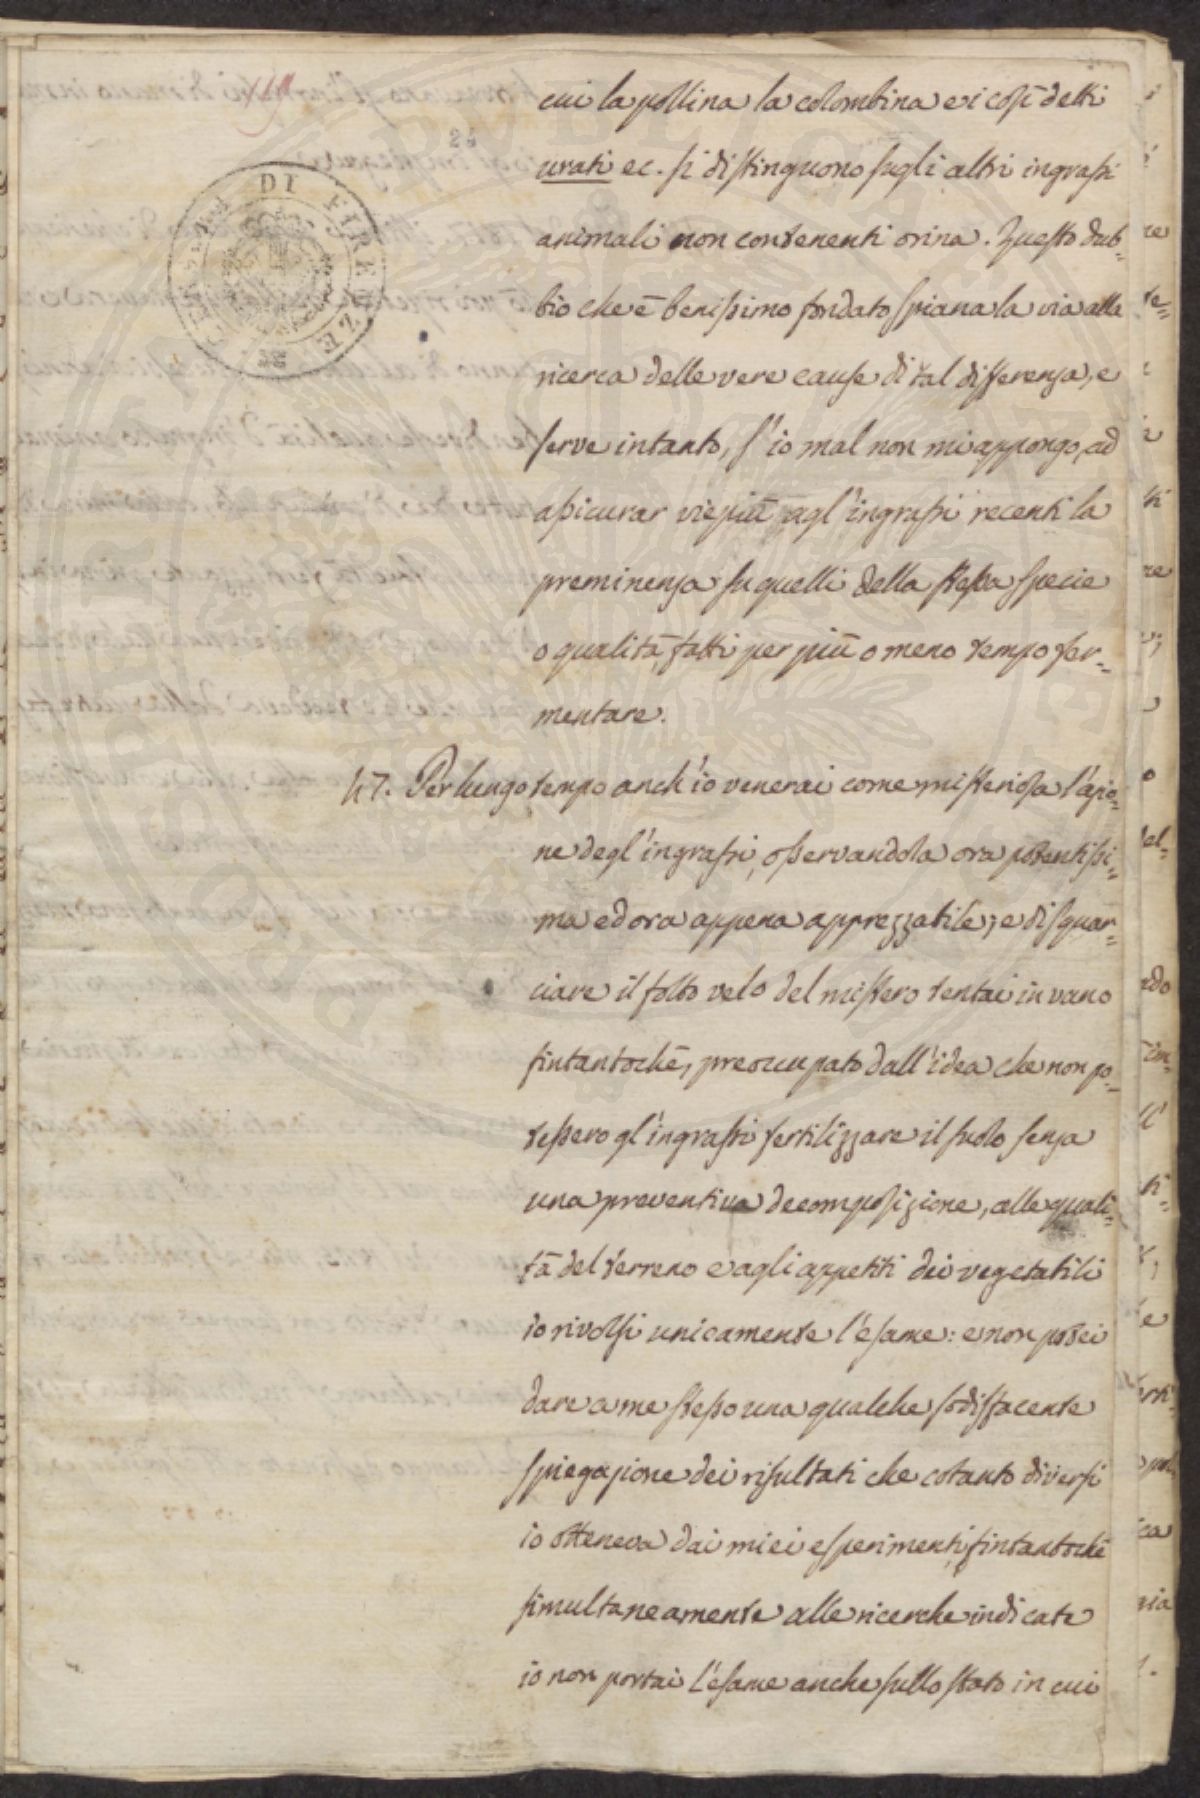 cui la pollina la colombina e i così detti
urati ec. si distinguono sugli altri ingrassi
animali non contenenti orina. Questo dub=
bio che è benissimo fondato spiana la via alla
ricerca delle vere cause di tal differenza, e
serve intanto, s'io mal non mi appongo, ad
assicurar viepiù agl'ingrassi recenti la
preminenza su quelli della stessa specie
o qualità fatti per più o meno tempo fer=
mentare.
47. Per lungo tempo anch'io venerai come misteriosa l'azio=
ne degl'ingrassi, osservandola ora potentissi=
ma ed ora appena apprezzabile; e di squar=
ciare il folto velo del mistero tentai invano
fintantochè, preoccupato dall'idea che non po=
tessero gl'ingrassi fertilizzare il suolo senza
una preventiva decomposizione, alle quali=
tà del terreno e agli appetiti dei vegetabili
io rivolsi unicamente l'esame: e non potei
dare a me stesso una qualche sodisfacente
spiegazione dei risultati che cotanto diversi
io otteneva dai miei esperimenti, fintantochè
simultaneamente alle ricerche indicate
io non portai l'esame anche sullo stato in cui
DI FIRENZE